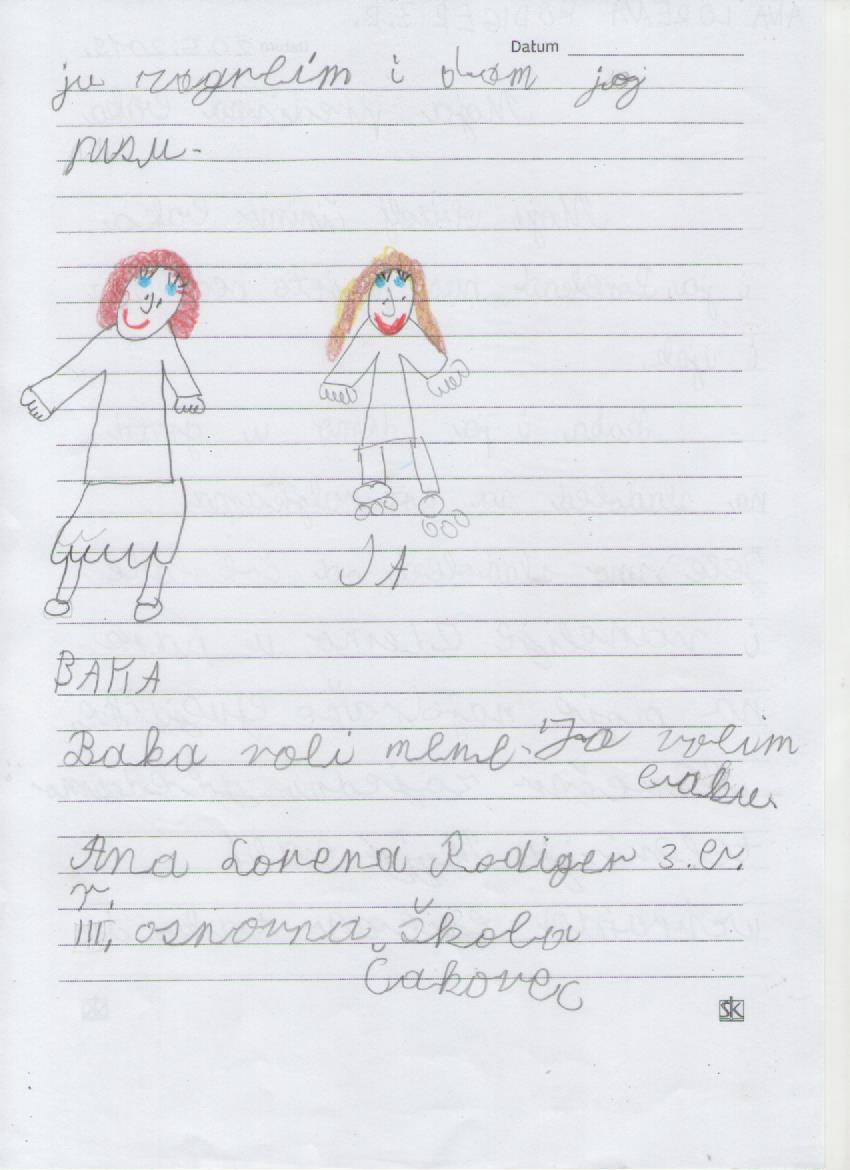 Datum
ju zagrlim i dam joj
pusu.
JA
BAKA
Baka voli mene. Ja volim
baku.
Ana Lorena Rodiger 3.b.
r.
III, osnovna škola
Čakovec
SK